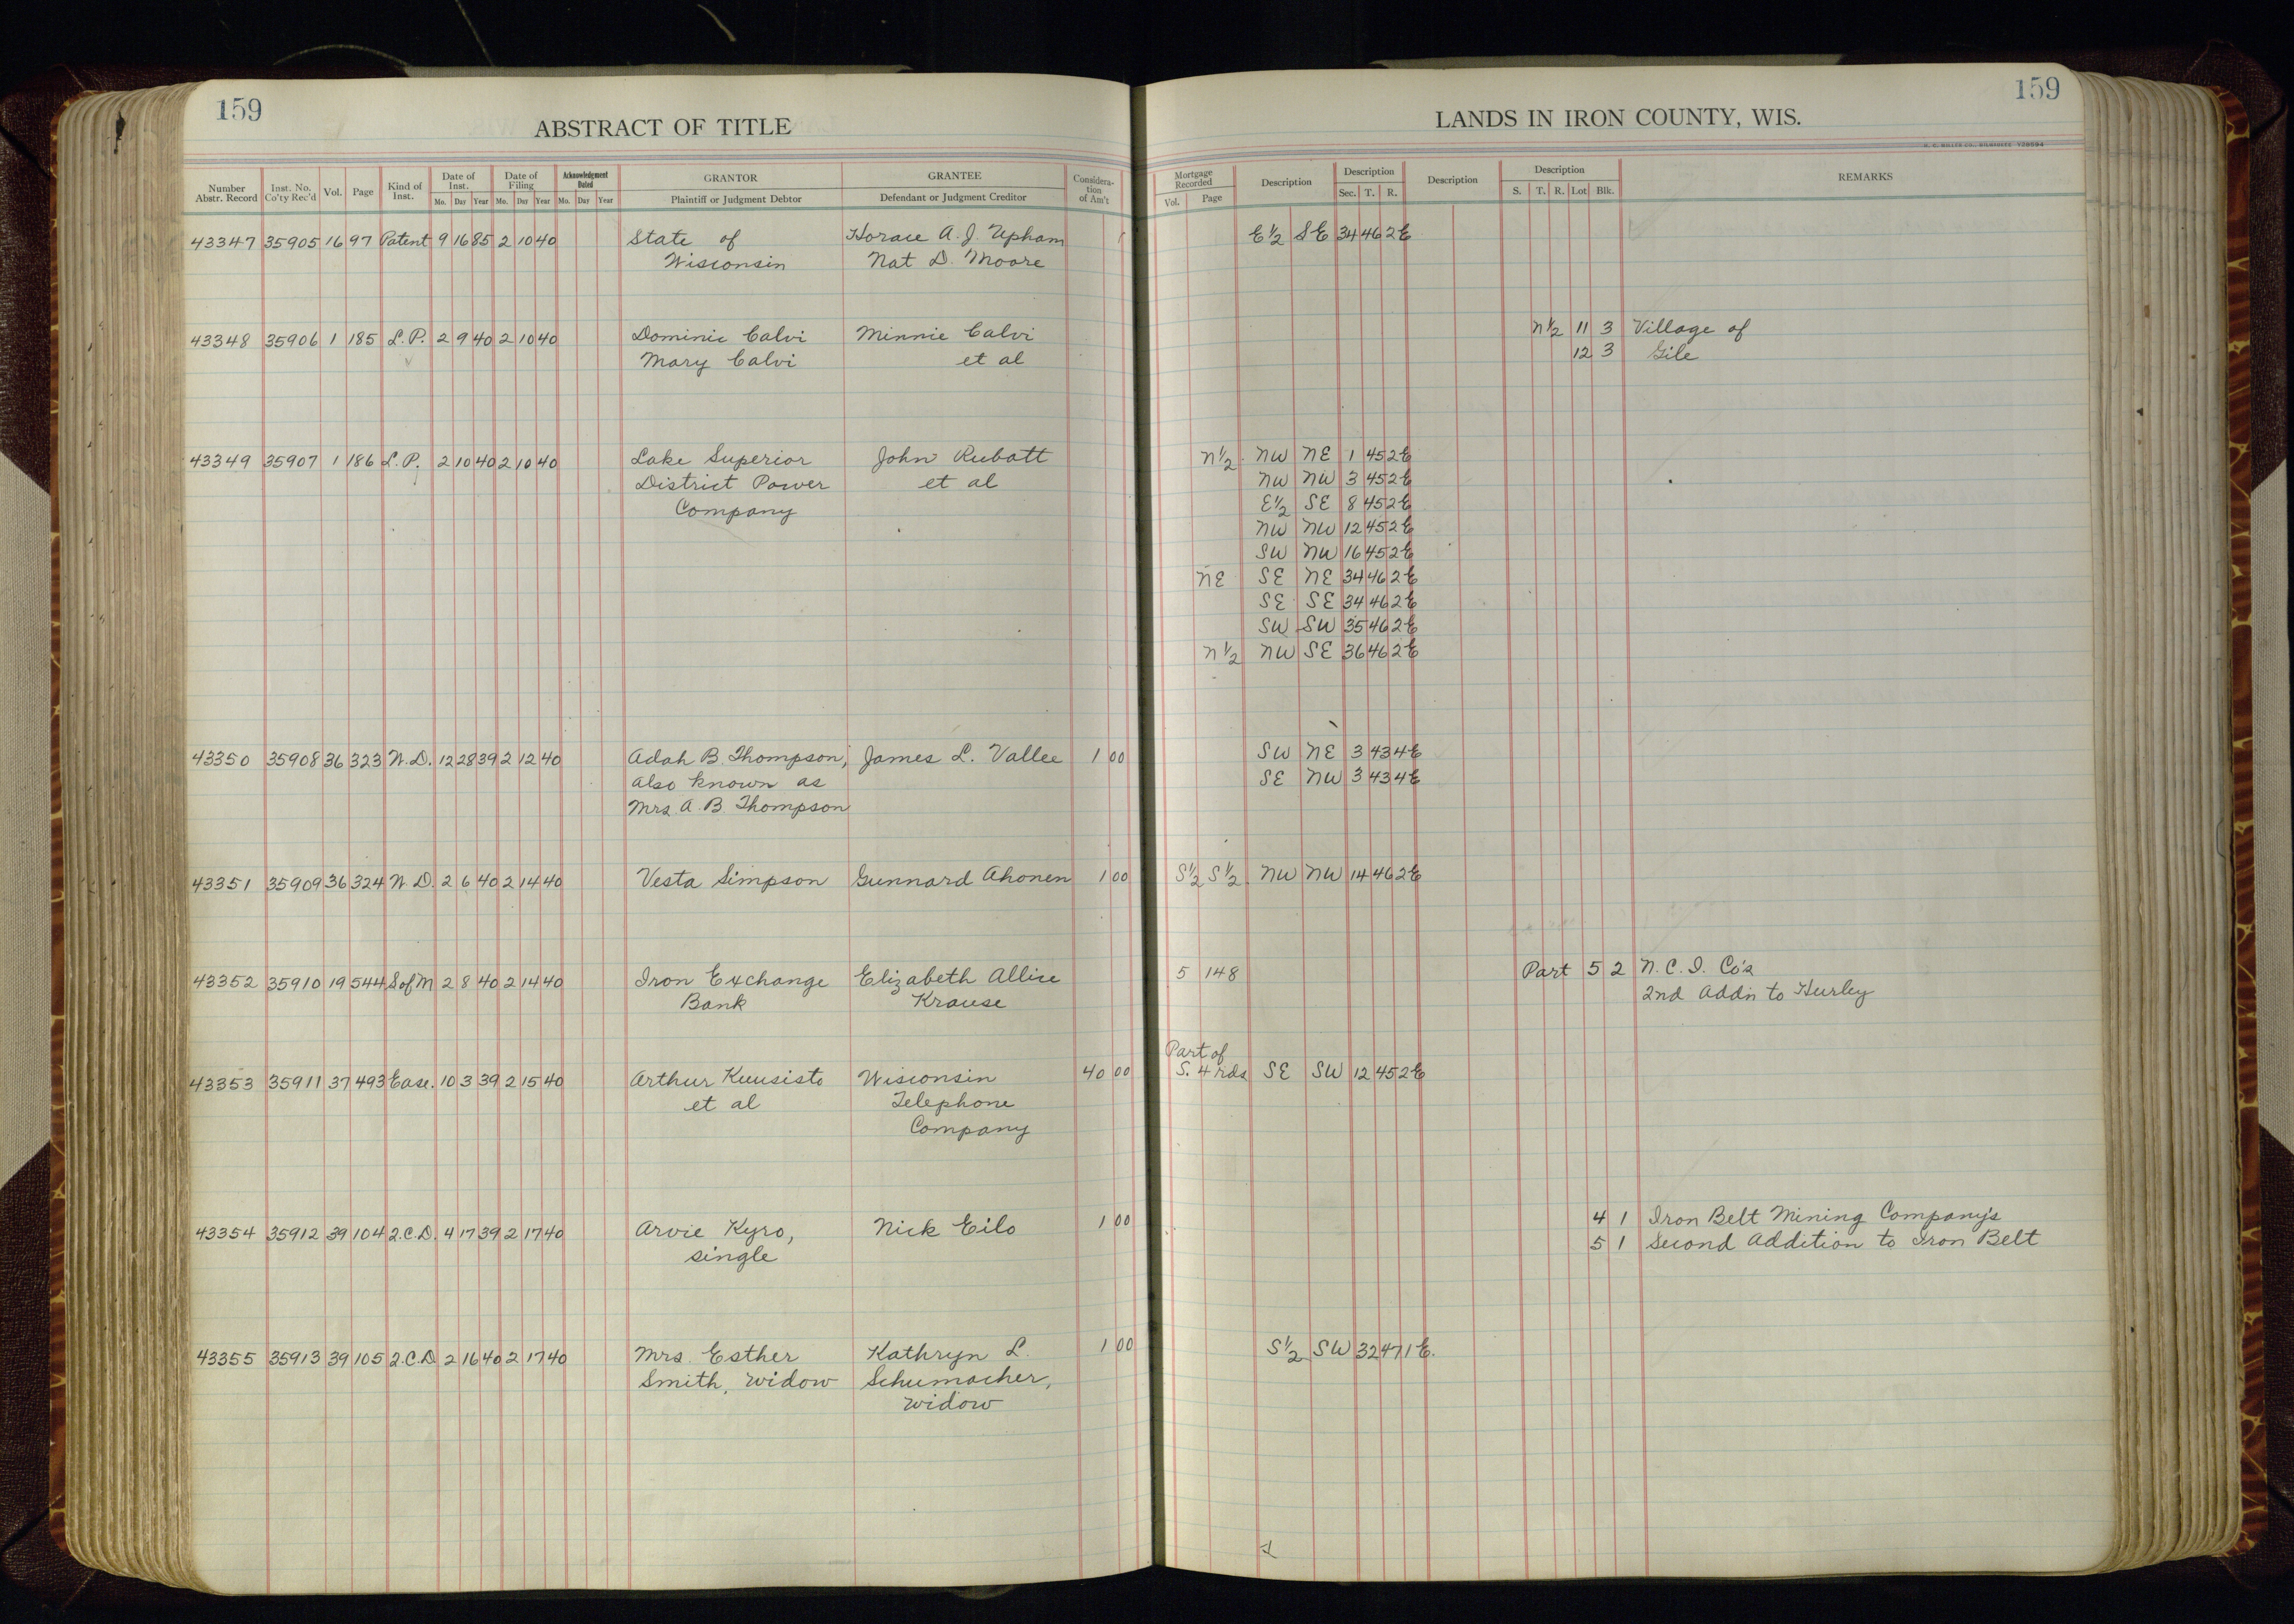 159
ABSTRACT OF TITLE
Number Abstr. Record | Inst. No. Co'ty Rec'd | Vol. | Page | Kind of Inst. | Date of Inst. Mo. Day Year | Date of Filing Mo. Day Year | Acknowledgment Dated Mo. Day Year | GRANTOR Plaintiff or Judgment Debtor | GRANTEE Defendant or Judgment Creditor | Considera-tion of Am't
43347 35905 16 97 Patent 9 16 85 2 10 40 State of Horace A. J. Upham
Wisconsin Nat D. Moore
43348 35906 1 185 L.P. 2 9 40 2 10 40 Dominic Calvi Minnie Calvi
Mary Calvi et al
43349 35907 1 186 L.P. 2 10 40 2 10 40 Lake Superior John Rubatt
District Power et al
Company
43350 35908 36 323 W.D. 12 28 39 2 12 40 Adah B. Thompson, James L. Vallee 1 00
also known as
Mrs A. B. Thompson
43351 35909 36 324 W D. 2 6 40 2 14 40 Vesta Simpson Gunnard Ahonen 1 00
43352 35910 19 544 S of M 2 8 40 2 14 40 Iron Exchange Elizabeth Allice
Bank Krause
43353 35911 37 493 Ease. 10 3 39 2 15 40 Arthur Kuusisto Wisconsin 40 00
et al Telephone
Company
43354 35912 39 104 2.C.D. 4 17 39 2 17 40 Arvie Kyro, Nick Eilo 1 00
single
43355 35913 39 105 2.C.D 2 16 40 2 17 40 Mrs. Esther Kathryn L. 1 00
Smith, widow Schumacher,
widow
159
LANDS IN IRON COUNTY, WIS.
Mortgage Recorded Vol. Page | Description | Description Sec. T. R. | Description | Description S. T. R. Lot Blk. | REMARKS
E½ SE 34 46 2E
N½ 11 3 Village of
12 3 Gile
N½ NW NE 1 45 2E
NW NW 3 45 2E
E½ SE 8 45 2E
NW NW 12 45 2E
SW NW 16 45 2E
NE SE NE 34 46 2E
SE SE 34 46 2E
SW SW 35 46 2E
N½ NW SE 36 46 2E
SW NE 3 43 4E
SE NW 3 43 4E
S½ S½ NW NW 14 46 2E
5 148 Part 5 2 N. C. I. Co's
2nd Add'n to Hurley
Part of
S. 4 rds SE SW 12 45 2E
4 1 Iron Belt Mining Company's
5 1 Second Addition to Iron Belt
S½ SW 32 47 1E.